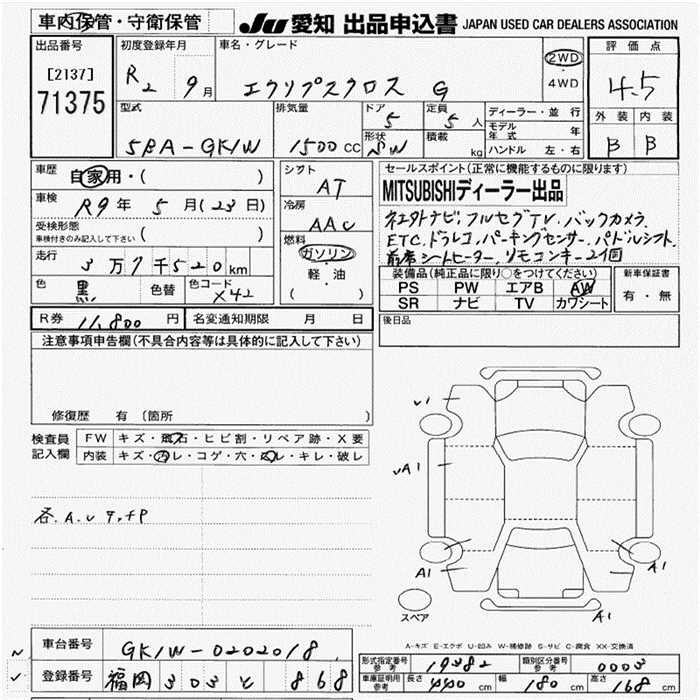 車内保管・守衛保管 JU 愛知 出品申込書 JAPAN USED CAR DEALERS ASSOCIATION
出品番号 初度登録年月 車名・グレード 2WD ・ 4WD 評価点
[2137] 71375 R2 9月 エクリプスクロス G 4.5
型式 排気量 ドア 5 定員 5人 ディーラー・並行 外装 内装
モデル年式 年
5BA-GK1W 1500cc 形状 SW 積載 kg ハンドル 左・右 B B
車歴 自家用・( ) シフト AT セールスポイント(正常に機能するものに限ります)
車検 R9年 5月(23日) 冷房 AAC MITSUBISHIディーラー出品
受検形態 車検付きのみ記入して下さい ( ) 燃料 ガソリン 軽・油 ( )
ナビ.フルセグTV.バックカメラ
ETC.ドラレコ.パーキングセンサー.パドルシフト.
前席シートヒーター.リモコンキー2個
走行 3万7千520km
色 黒 色替 色コード X42
装備品(純正品に限り○をつけてください) 新車保証書
PS PW エアB AW 有・無
SR ナビ TV カワシート
R券 11,800円 名変通知期限 月 日 後日品
注意事項申告欄(不具合内容等は具体的に記入して下さい)
修復歴 有 (箇所 )
検査員記入欄 FW キズ・飛石・ヒビ割・リペア跡・X要
内装 キズ・汚レ・コゲ・穴・スレ・キレ・破レ
U1
UA1
各.A.U
A1
A1
スペア
A1
A-キズ E-エクボ U-凹み W-補修跡 S-サビ C-腐食 XX-交換済
車台番号 GK1W-0202018
形式指定番号 参考 19382 類別区分番号 参考 0003
登録番号 福岡 303 と 868
車庫証明用 参考 長さ 440cm 幅 180cm 高さ 168cm